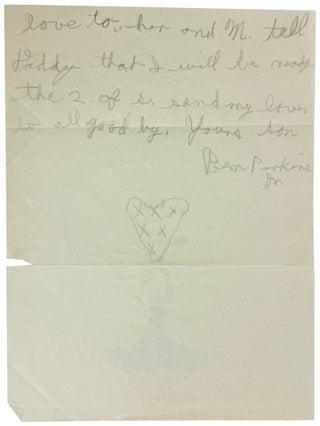 love to her and M. tell
Daddy that I will be ready
the 2 of s. send my love
to all good by. Yours son
Ben Perkins
Jr.
x x x
x x
x